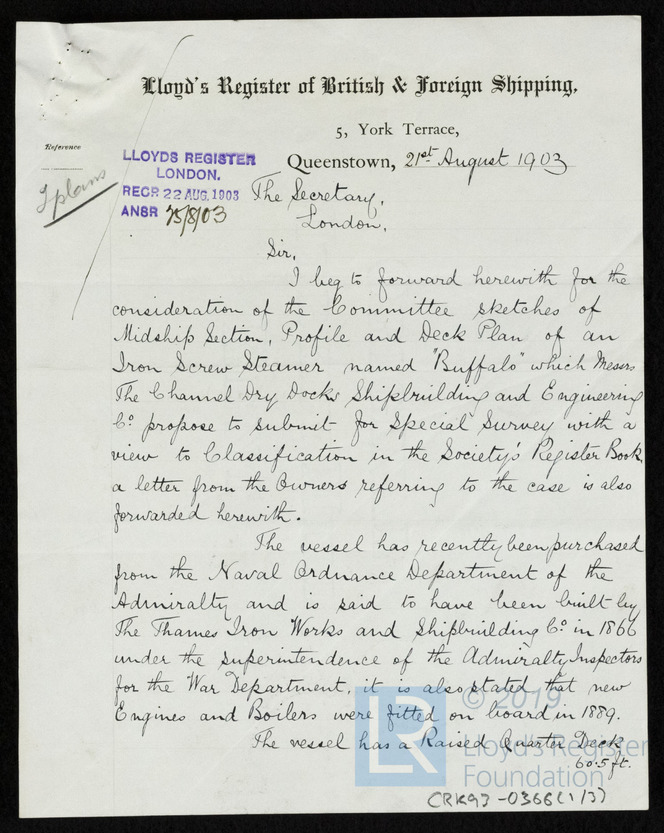 Lloyd's Register of British & Foreign Shipping,
5, York Terrace,
Reference
Queenstown, 21st August 1903
LLOYDS REGISTER
LONDON.
RECR 22 AUG. 1903
ANSR 25/8/03
3 plans
The Secretary,
London,
Sir,
I beg to forward herewith for the
consideration of the Committee sketches of
Midship Section, Profile and Deck Plan of an
Iron Screw Steamer named "Buffalo" which Messrs
The Channel Dry Docks Shipbuilding and Engineering
Co. propose to submit for Special Survey with a
view to Classification in the Society's Register Book
a letter from the Owners referring to the case is also
forwarded herewith.
The vessel has recently been purchased
from the Naval Ordnance Department of the
Admiralty and is said to have been built by
The Thames Iron Works and Shipbuilding Co. in 1866
under the superintendence of the Admiralty Inspectors
for the War Department, it is also stated that new
Engines and Boilers were fitted on board in 1889.
The vessel has a Raised Quarter Deck
60.5 ft.
LR
© 2019
Lloyd's Register
Foundation
CRK93-0366(1/3)